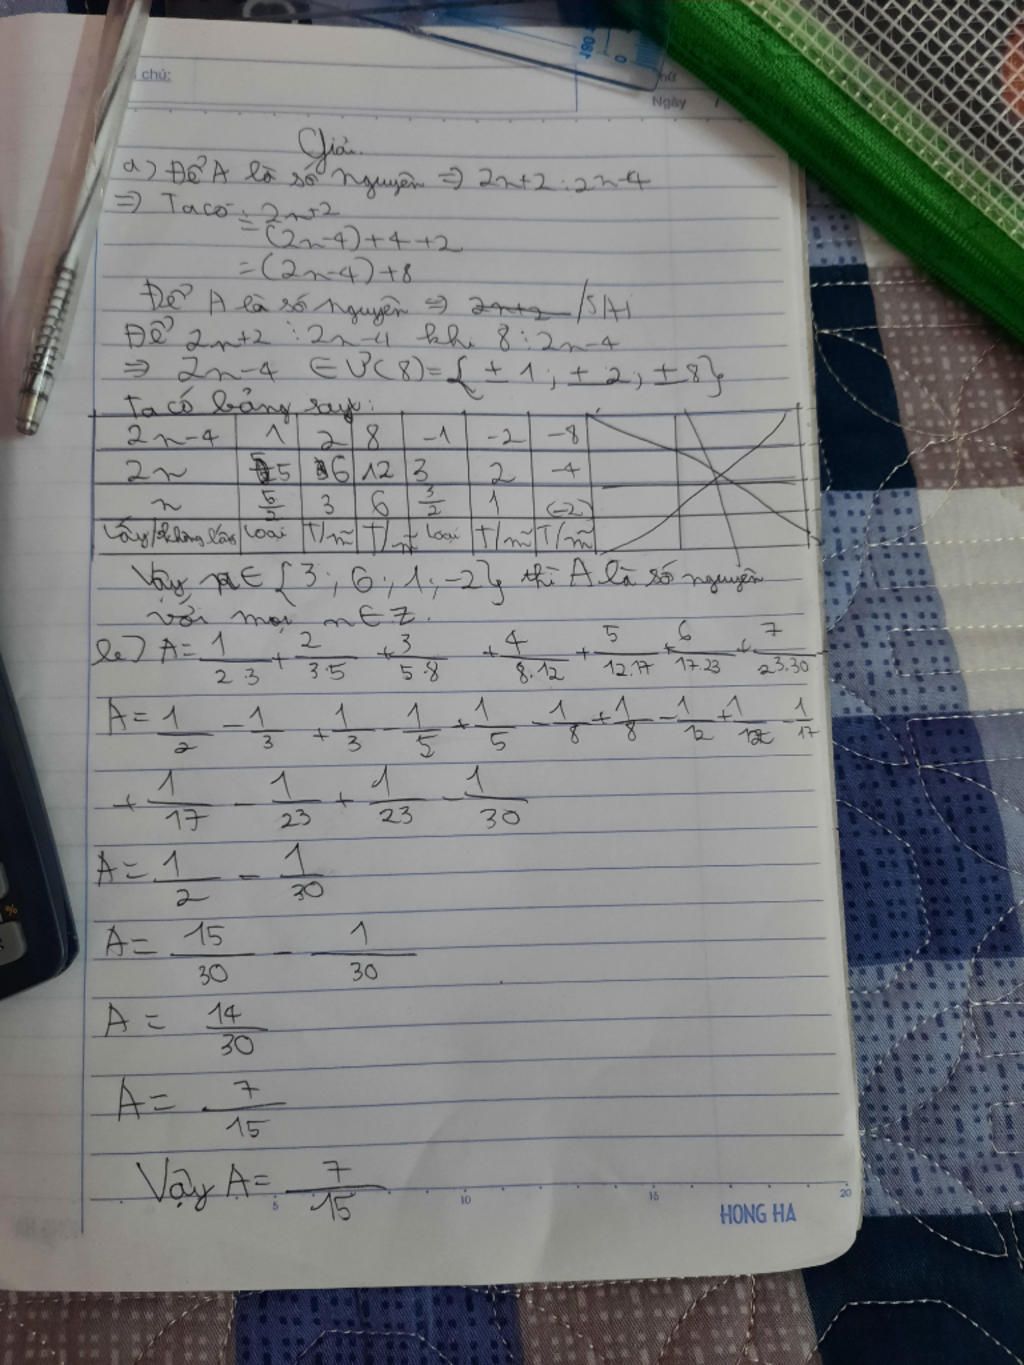 chú:
Ngày
180
0
Giải.
a) Để A là số nguyên ⇒ 2n+2 ⋮ 2n-4
⇒ Ta có : 2n+2
= (2n-4)+4+2
= (2n-4)+8
Để A là số nguyên ⇒ 2n+2
Để 2n+2 ⋮ 2n-4 khi 8 ⋮ 2n-4
⇒ 2n-4 ∈ Ư(8) = { ±1 ; ±2 ; ±8 }
Ta có bảng sau:
2n-4 1 2 8 -1 -2 -8
2n 5 6 12 3 2 -4
n 5/2 3 6 3/2 1 (-2)
Lấy/không lấy loại T/m T/m loại T/m T/m
Vậy n ∈ { 3 ; 6 ; 1 ; -2 } thì A là số nguyên
với mọi n ∈ Z.
A = 1/2.3 + 2/3.5 + 3/5.8 + 4/8.12 + 5/12.17 + 6/17.23 + 7/23.30
A = 1/2 - 1/3 + 1/3 - 1/5 + 1/5 - 1/8 + 1/8 - 1/12 + 1/12 - 1/17
+ 1/17 - 1/23 + 1/23 - 1/30
A = 1/2 - 1/30
A = 15/30 - 1/30
A = 14/30
A = 7/15
Vậy A = 7/15
5 10 15 20
HONG HA